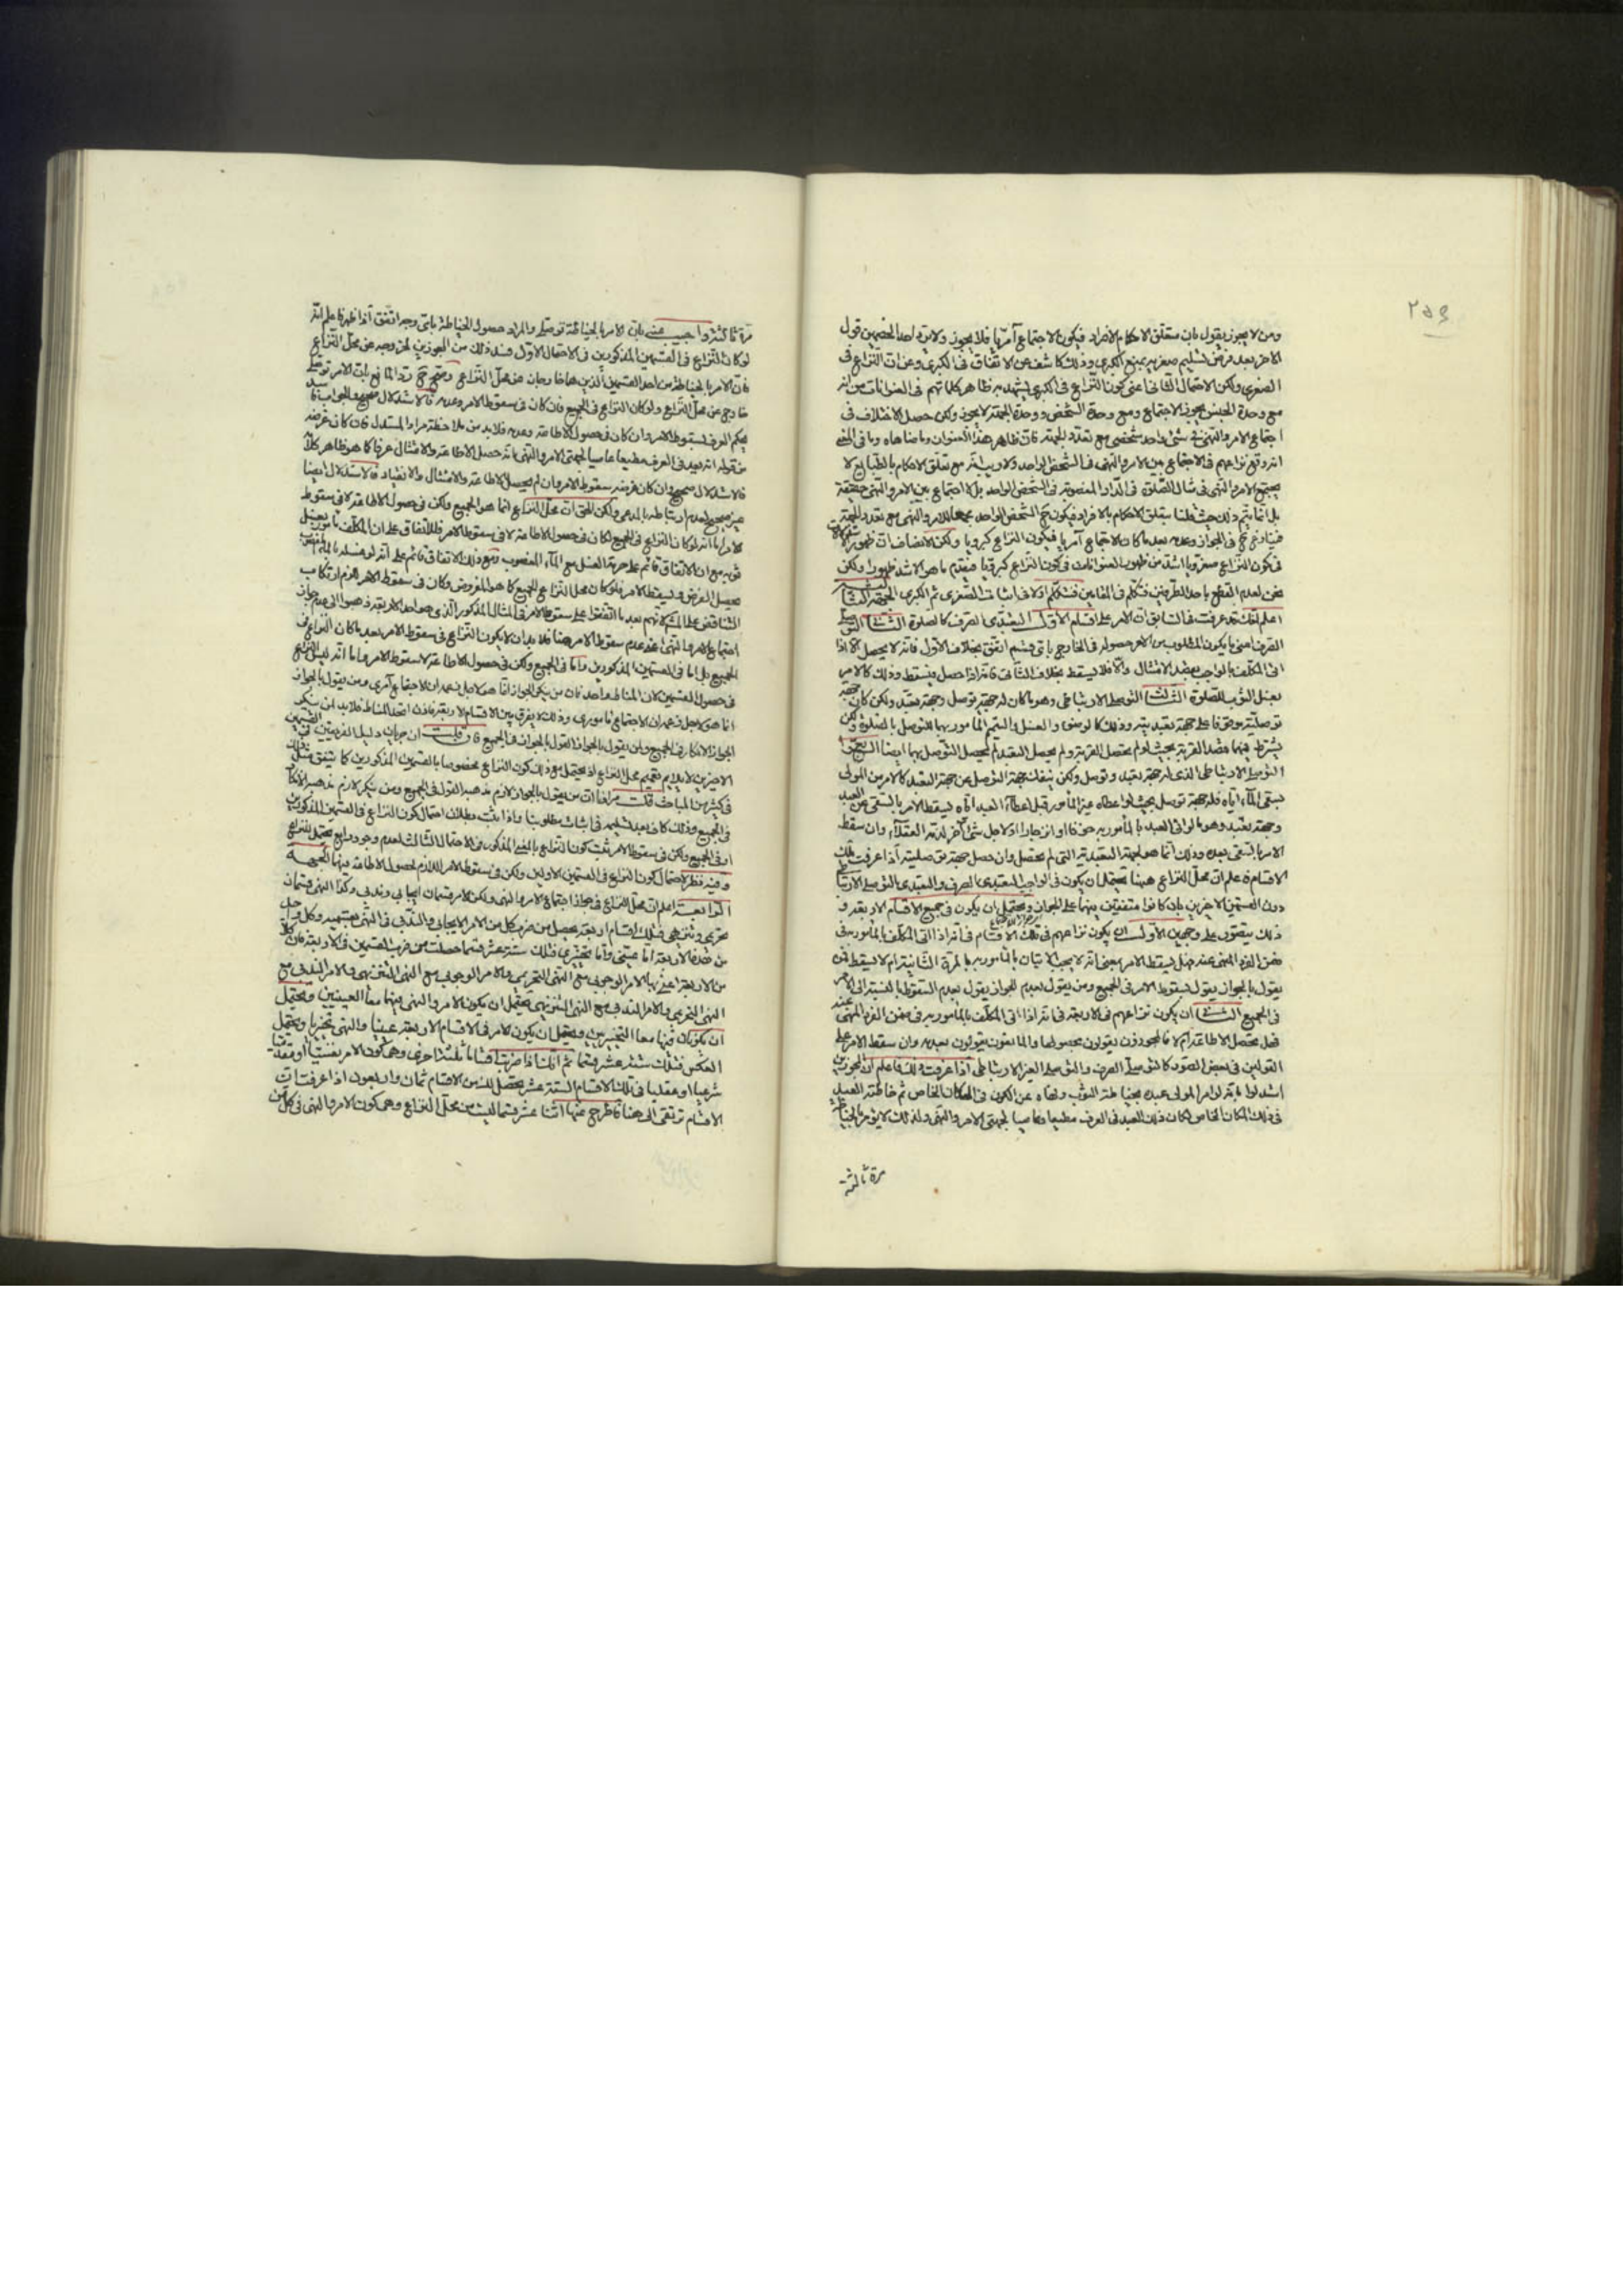 ٢٥٩
ومن لا يجوز يقول بان متعلق الاحكام الافراد فيكون الاجتماع آمريا فلا يجوز ولا يرد احد الخصمين قول
الاخر بعد فرض تسليم صغريه بمنع الكبرى وذلك كاشف عن الاتفاق فى الكبرى وعن ان النزاع فى
الصغرى ولكن الاحتمال الثانى اعنى كون النزاع فى الكبرى يشهد به ظاهر كلماتهم فى العنوانات من انه
مع وحدة الجنس يجوز الاجتماع ومع وحدة الشخص ووحدة الجهة لا يجوز ولكن حصل الاختلاف فى
اجتماع الامر والنهى فى شئ واحد شخصى مع تعدد الجهة فان ظاهر هذا العنوان وما ضاهاه وما فى
انه وقع نزاعهم فى الاجتماع بين الامر والنهى فى الشخص الواحد ولا ريب انه مع تعلق الاحكام بالطبايع لا
يجتمع الامر والنهى فى مثال الصلوة فى الدار المغصوبة فى الشخص الواحد بل لا اجتماع بين الامر والنهى حقيقة
بل انما يتم ذلك حيث قلنا بتعلق الاحكام بالافراد فيكون ح الشخص الواحد مجمعا للامر والنهى مع تعدد الجهة
فيتنازع ح فى الجواز وعدمه بعد ما كان الاجتماع آمريا فيكون النزاع كبرويا ولكن الانصاف ان ظهور
فى كون النزاع صغرويا اشد من ظهور العنوانات فى كون النزاع كبرويا فيقدم ما هو الاشد ظهورا ولكن
نحن لعدم القطع باحد الطرفين نتكلم فى المقامين فنتكلم اولا فى اثبات الصغرى ثم الكبرى الجهة الثالثة
اعلم انك قد عرفت فى السابق ان الامر على اقسام الاول التعبدى الصرف كالصلوة الثانى التوصلى
الصرف اعنى ما يكون المطلوب من الامر حصوله فى الخارج باى قسم اتفق بخلاف الاول فانه لا يحصل الا اذا
اتى المكلف بالواجب بقصد الامتثال والا فلا يسقط بخلاف الثانى فانه اذا حصل يسقط وذلك كالامر
بغسل الثوب للصلوة الثالث التوصلى الارتباطى وهو ما كان له جهة توصل وجهة تعبد ولكن كان جهة
توصليته موقوفا على جهة تعبديته وذلك كالوضوء والغسل والتيمم المأمور بها للتوصل بالصلوة ولكن
يشترط فيها قصد القربة بحيث لو لم يحصل القربة ولم يحصل التعبد لم يحصل التوصل بها ايضا الرابع
التوصلى الارتباطى الذى له جهة تعبد وتوصل ولكن ينفك جهة التوصل عن جهة التعبد كالامر من المولى
بسقى الماء اياه فله جهة توصل بحيث لو اعطاه غير المأمور قبل اعطاء العبد اياه يسقط الامر بالسقى عن العبد
وجهة تعبد وهو ما لو اتى العبد بالمأمور به
الامر بالسقى بعده وذلك انما هو لجهة التعبدية التى لم تحصل وان حصل جهة توصلية اذا عرفت تلك
الاقسام فاعلم ان محل النزاع ههنا يحتمل ان يكون فى الواجب التعبدى الصرف والتعبدى التوصلى الارتباطى
دون القسمين الاخرين بان كانوا متفقين فيهما على الجواز ويحتمل ان يكون فى جميع الاقسام الاربعة و
ذلك يتصور على وجهين الاول ان يكون نزاعهم فى تلك الاقسام فى انه اذا اتى المكلف بالمأمور به فى
ضمن الفرد المنهى عنه هل يسقط الامر بمعنى انه لا يجب الاتيان بالمأمور به بالمرة الثانية ام لا يسقط فمن
يقول بالجواز يقول بسقوط الامر فى الجميع ومن يقول بعدم الجواز يقول بعدم السقوط بالنسبة الى الامر
فى الجميع الثانى ان يكون نزاعهم فى الاربعة فى انه اذا اتى المكلف بالمأمور به فى ضمن الفرد المنهى عنه
فهل يحصل الاطاعة ام لا فالمجوزون يقولون بحصولها والمانعون يقولون بعدمه وان سقط الامر على
القولين فى بعض الصور كالتوصلى الصرف والتوصلى الغير الارتباطى اذا عرفت ذلك فاعلم ان المجوزين
استدلوا بانه لو امر المولى عبده بخياطة الثوب ونهاه عن الكون فى المكان الخاص ثم خاطه العبد
فى ذلك المكان الخاص لكان ذلك العبد فى العرف مطيعا وعاصيا لجهتى الامر والنهى ولذلك لا يؤمر بالخياطة
مرة ثالثة
مرة ثالثة واجيب عنه بان الامر بالخياطة توصلى والمراد حصول الخياطة باى وجه اتفق اذا ظهر فاعلم انه
لو كان النزاع فى القسمين المذكورين فى الاحتمال الاول فسد ذلك من المجوزين لخروجه عن محل النزاع
فان الامر بالخياطة من احد القسمين الذين هما خارجان عن محل النزاع ويتجه ح رد المانع بان الامر توصلى
خارج عن محل النزاع ولو كان النزاع فى الجميع فان كان فى سقوط الامر وعدمه فالاستدلال صحيح والجواب فاسد
يحكم العرف بسقوط الامر وان كان فى حصول الاطاعة وعدمه فلا بد من ملاحظة مراد المستدل فان كان غرضه
من قوله انه يعد فى العرف مطيعا عاصيا لجهتى الامر والنهى بانه حصل الاطاعة والامتثال عرفا كما هو ظاهر كلامه
فالاستدلال صحيح وان كان غرضه سقوط الامر وان لم يحصل الاطاعة والامتثال والانقياد فالاستدلال ايضا
غير صحيح لعدم ارتباطه بالمدعى ولكن الحق ان محل النزاع انما هو الجميع ولكن فى حصول الاطاعة لا فى سقوط
الامر اما انه لو كان النزاع فى الجميع لكان فى حصول الاطاعة لا فى سقوط الامر فللاتفاق على ان المكلف مأمور بغسل
ثوبه مع ان الاتفاق قائم على حرمة الغسل مع الماء المغصوب ومع ذلك الاتفاق قائم على انه لو غسله بالماء المغصوب
يحصل الغرض ويسقط الامر فلو كان محل النزاع الجميع كما هو المفروض وكان فى سقوط الامر للزم ارتكاب
التناقض على المشهور لانهم بعد ما اتفقوا على سقوط الامر فى المثال المذكور الذى هو احد الاربعة ذهبوا الى عدم جواز
اجتماع الامر والنهى اعنى عدم سقوط الامر هنا فلا بد ان لا يكون النزاع فى سقوط الامر بعد ما كان النزاع فى
الجميع بل اما فى القسمين المذكورين واما فى الجميع ولكن فى حصول الاطاعة لا سقوط الامر واما انه ليس النزاع
فى حصول القسمين لان المناط واحد فان من ينكر الجواز انما هو لاجل زعمه ان الاجتماع آمرى ومن يقول بالجواز
انما هو لاجل زعمه ان الاجتماع مأمورى وذلك لا يفرق بين الاقسام الاربعة فاذن اتحد المناط فلا بد لمن ينكر
الجواز الانكار فى الجميع ولمن يقول بالجواز القول بالجواز فى الجميع فان قلت ان جريان دليل الفريقين فى القسمين
الاخيرين لا يلايم تعميم محل النزاع اذ يحتمل مع ذلك كون النزاع مخصوصا بالقسمين المذكورين كما يتفق مثل ذلك
فى كثير من المباحث قلت مرادنا ان من يقول بالجواز لازم مذهبه القول فى الجميع ومن ينكر لازم مذهبه الانكار
فى الجميع وذلك كاف بعد تسليمه فى اثبات مطلوبنا واذا ثبت بطلان احتمال كون النزاع فى القسمين المذكورين
او فى الجميع ولكن فى سقوط الامر ثبت كون النزاع بالنحو المذكور فى الاحتمال الثالث لعدم وجود رابع يحتمل النزاع
وفيه نظر لاحتمال كون النزاع فى القسمين الاولين ولكن فى سقوط الامر اللازم لحصول الاطاعة فيهما الجهة
الرابعة اعلم ان محل النزاع فى جواز اجتماع الامر والنهى ولكن الامر قسمان ايجابى وندبى وكذا النهى قسمان
تحريمى وتنزيهى فتلك اقسام اربعة يحصل من ضرب كل من الامر الايجابى والندبى فى النهى بقسميه وكل واحد
من هذه الاربعة اما عينى واما تخييرى فتلك ستة عشر قسما حصلت من ضرب القسمين فى الاربعة فان كلا
من الاربعة اعنى بها الامر الوجوبى مع النهى التحريمى والامر الوجوبى مع النهى التنزيهى والامر الندبى مع
النهى التحريمى والامر الندبى مع النهى التنزيهى يحتمل ان يكون الامر والنهى فيها معا العينيين ويحتمل
ان يكونا فيها معا التخييريين ويحتمل ان يكون الامر فى الاقسام الاربعة عينيا والنهى تخييريا ويحتمل
العكس فتلك ستة عشر قسما ثم اقسام ثلثة اخرى وهى كون الامر نفسيا او
شرعيا او عقليا فى تلك الاقسام الستة عشر يحصل لك من الاقسام ثمان واربعون اذا عرفت ان
الاقسام ترتقى الى هنا فاطرح عنها اثنا عشر قسما ليست من محل النزاع وهى كون الامر والنهى فى كل من